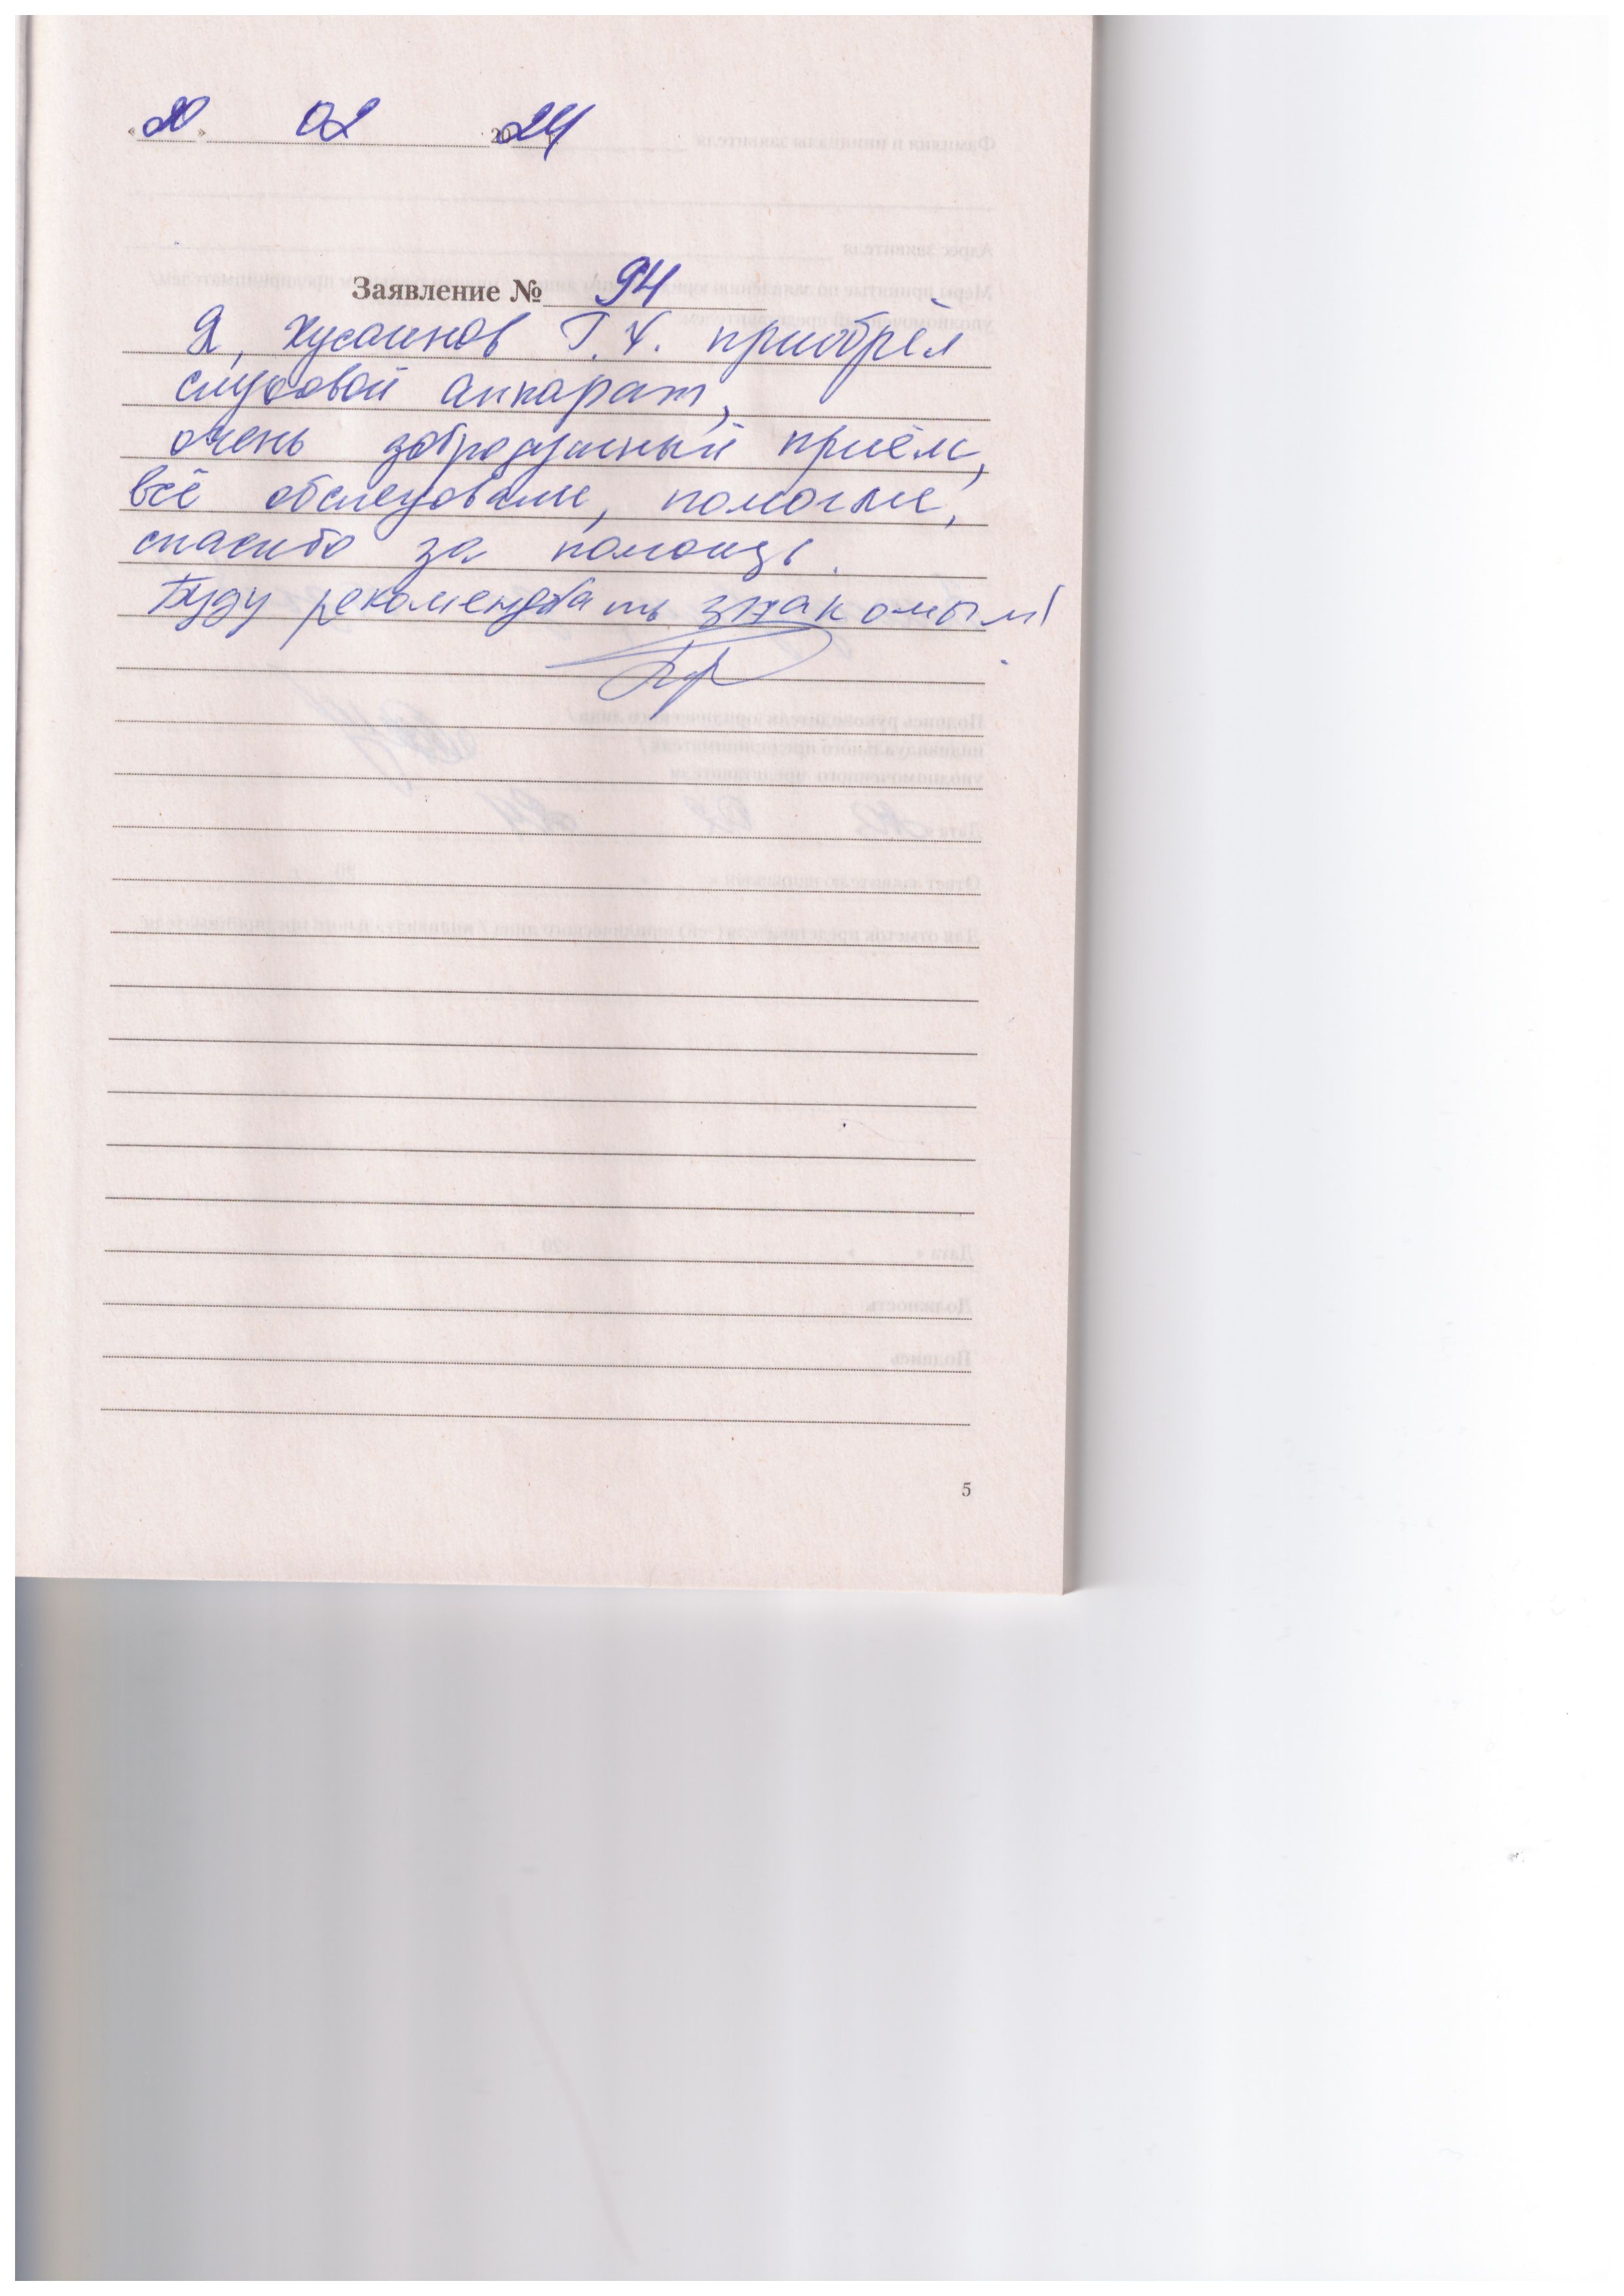 «20» 02 2024
Заявление № 94
Я, Хусаинов Г.Х. приобрёл
слуховой аппарат,
очень добродушный приём,
всё обследовали, помогли,
спасибо за помощь.
Буду рекомендовать знакомым!
5